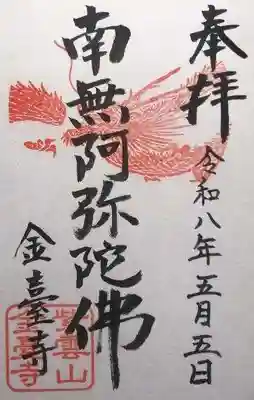 奉拝
令和八年五月五日
南無阿弥陀佛
金臺寺
紫雲山
金臺寺